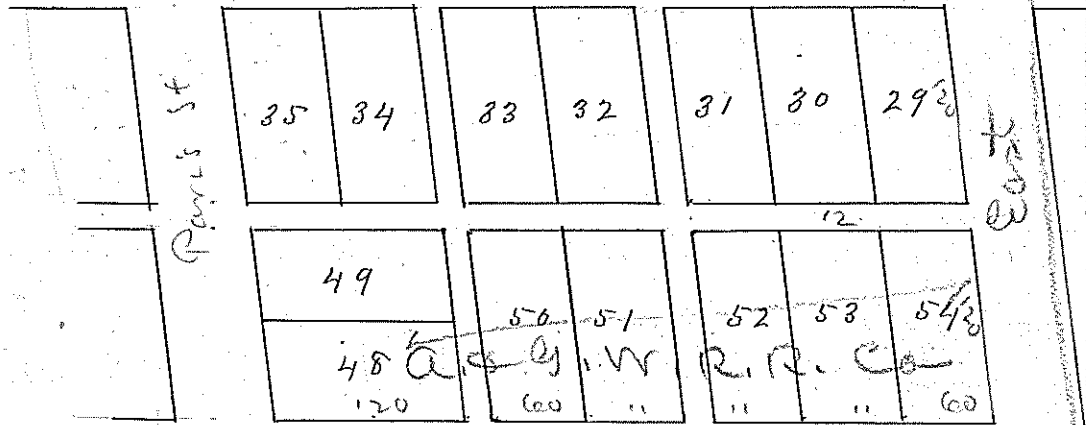 Paris St
35 34 33 32 31 30 29 1/2
East
12
49
50 51 52 53 54 1/2
48 A. & G. W. R. R. Co
120 60 " " " 60